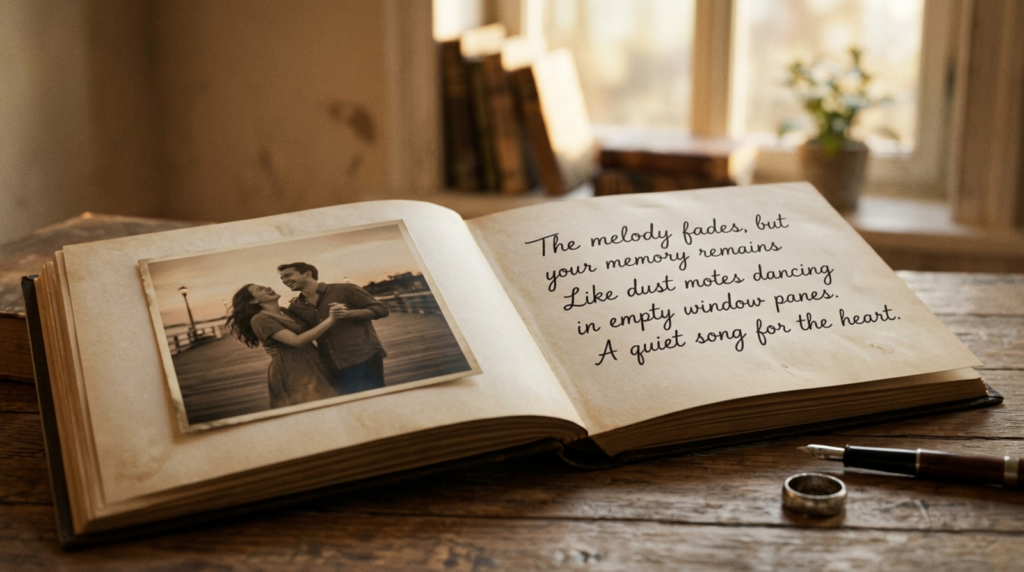 The melody fades, but
your memory remains
Like dust motes dancing
in empty window panes.
A quiet song for the heart.